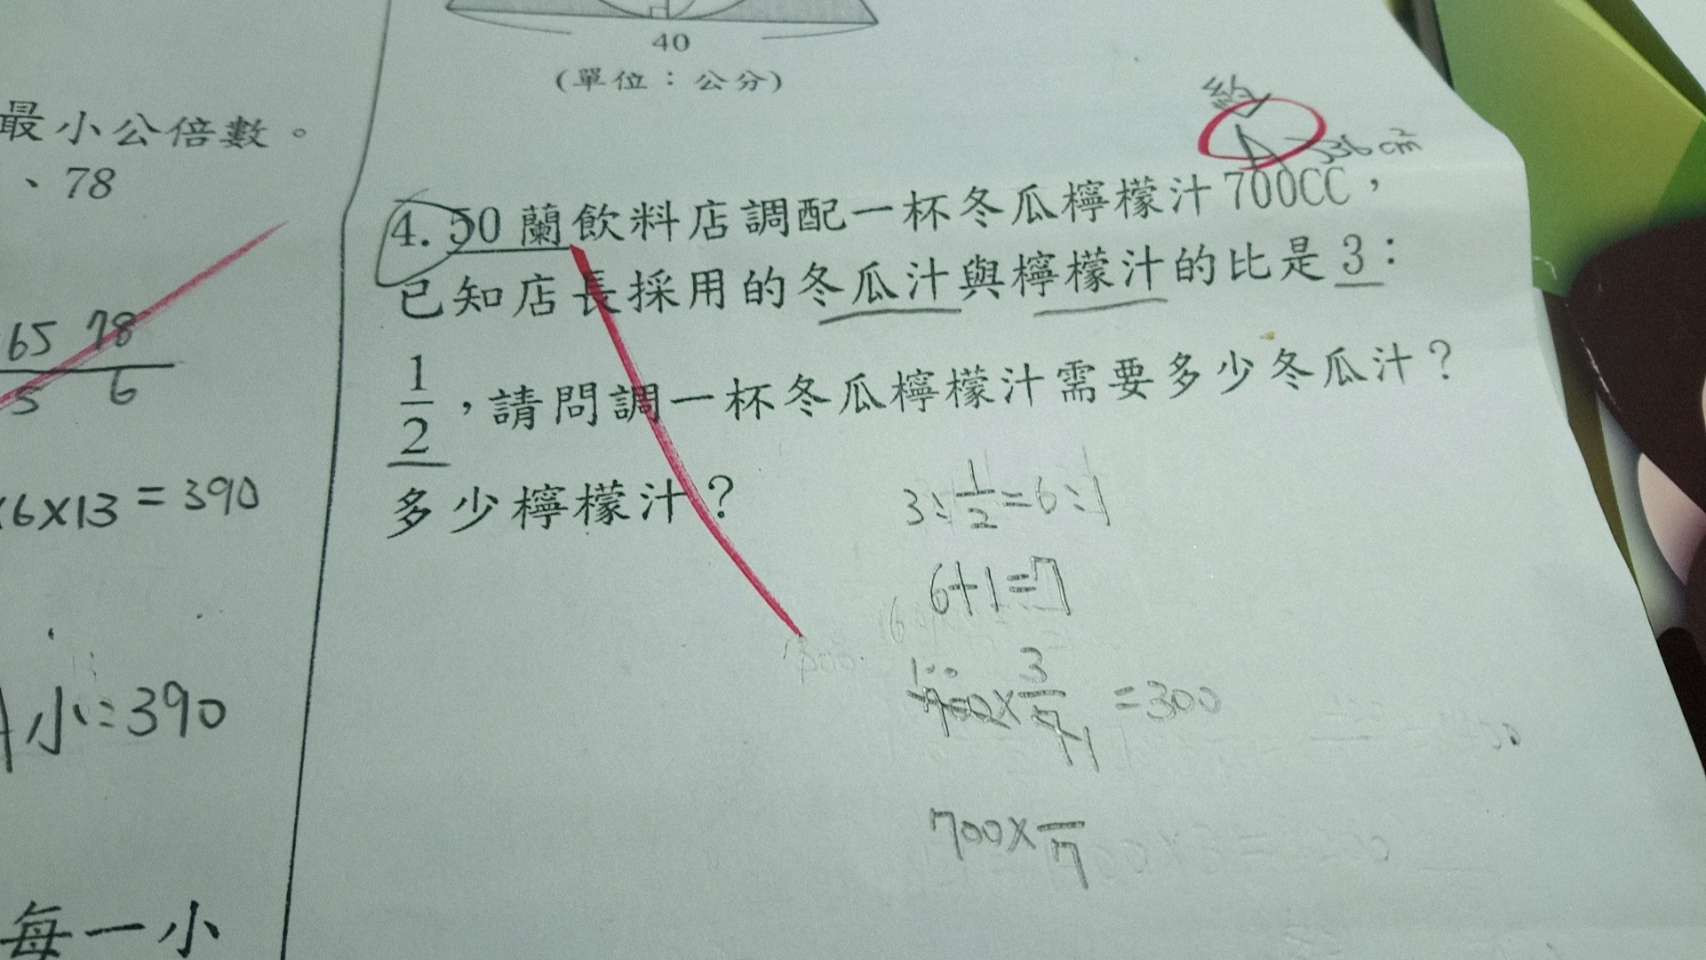 最小公倍數。
、78
65 78
5 6
×6×13=390
小:390
每一小
40
(單位：公分)
約
336 cm²
4. 50 蘭飲料店調配一杯冬瓜檸檬汁700CC，
已知店長採用的冬瓜汁與檸檬汁的比是 3：
1/2，請問調一杯冬瓜檸檬汁需要多少冬瓜汁？
多少檸檬汁？
3:1/2=6:1
6+1=7
100
700×3/7 =300
1
700×—/7